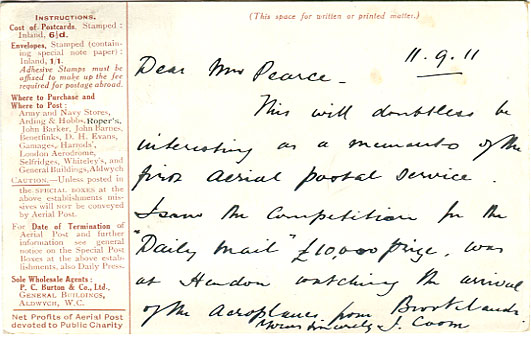 INSTRUCTIONS.
Cost of Postcards, Stamped:
Inland, 6½d.
Envelopes, Stamped (contain-
ing special note paper):
Inland, 1/1.
Adhesive Stamps must be
affixed to make up the fee
required for postage abroad.
Where to Purchase and
Where to Post:
Army and Navy Stores,
Arding & Hobbs, Roper's,
John Barker, John Barnes,
Benetfinks, D. H. Evans,
Gamages, Harrods',
London Aerodrome,
Selfridges, Whiteley's, and
General Buildings, Aldwych
CAUTION.—Unless posted in
the SPECIAL BOXES at the
above establishments mis-
sives will NOT be conveyed
by Aerial Post.
For Date of Termination of
Aerial Post and further
information see general
notice on the Special Post
Boxes at the above estab-
lishments, also Daily Press.
Sole Wholesale Agents:
P. C. Burton & Co., Ltd.,
GENERAL BUILDINGS,
ALDWYCH, W.C.
Net Profits of Aerial Post
devoted to Public Charity
(This space for written or printed matter.)
11.9.11
Dear Mrs Pearce -
This will doubtless be
interesting as a memento of the
first Aerial postal service.
I saw the Competition for the
"Daily Mail" £10,000 prize, was
at Hendon watching the arrival
of the Aeroplanes from Brooklands.
Yours sincerely J. Coom